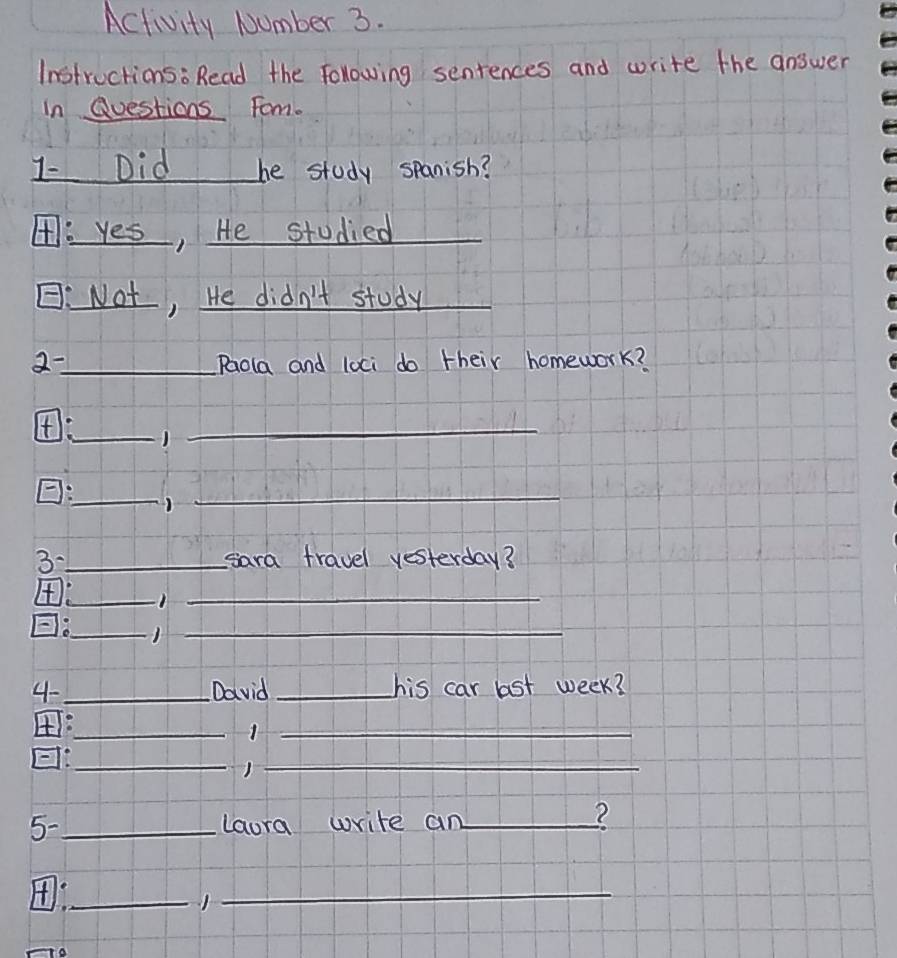 Activity Number 3.
Instructions: Read the following sentences and write the answer
in Questions Fom.
1- Did he study spanish?
+: yes, He studied
-: Not, He didn't study
2- Paola and loci do their homework?
+: ,
-: ,
3- sara travel yesterday?
+: ,
-: ,
4- David his car last week?
+: ,
-: ,
5- Laura write an ?
+: ,